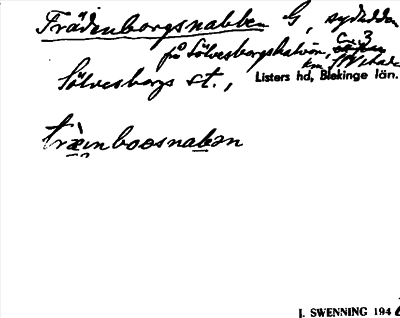 Frädenborgsnabben G, sydudden
på Sölvesborgshalvön, ca. 3
km
Sölvesborgs st., Listers hd, Blekinge län.
träınboosnabən
J. SWENNING 194